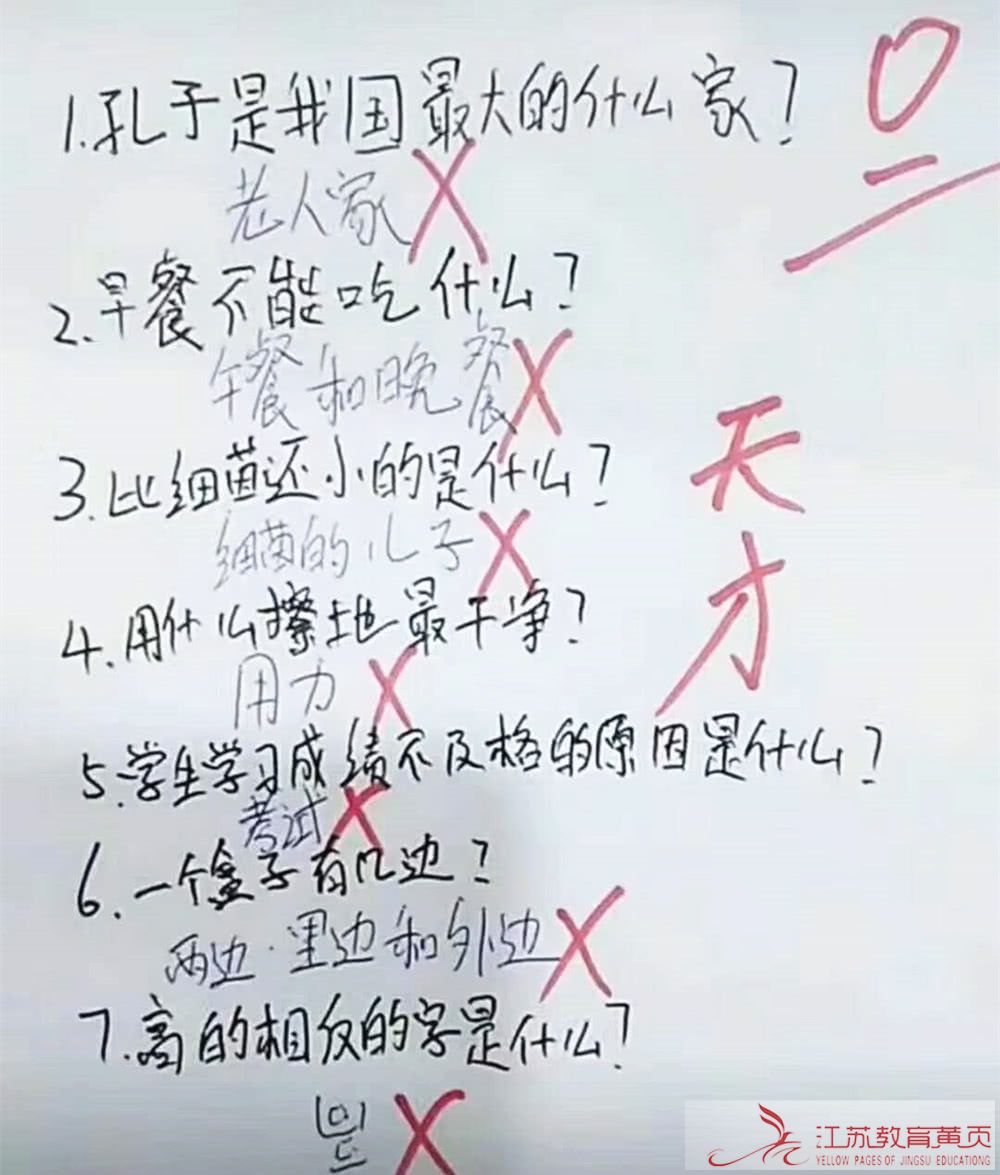 0
1.孔子是我国最大的什么家?
老人家
2.早餐不能吃什么?
午餐和晚餐
3.比细菌还小的是什么?
细菌的儿子
天才
4.用什么擦地最干净?
用力
5.学生学习成绩不及格的原因是什么?
考试
6.一个盒子有几边?
两边.里边和外边
7.高的相反的字是什么?
江苏教育黄页
YELLOW PAGES OF JINGSU EDUCATIONG